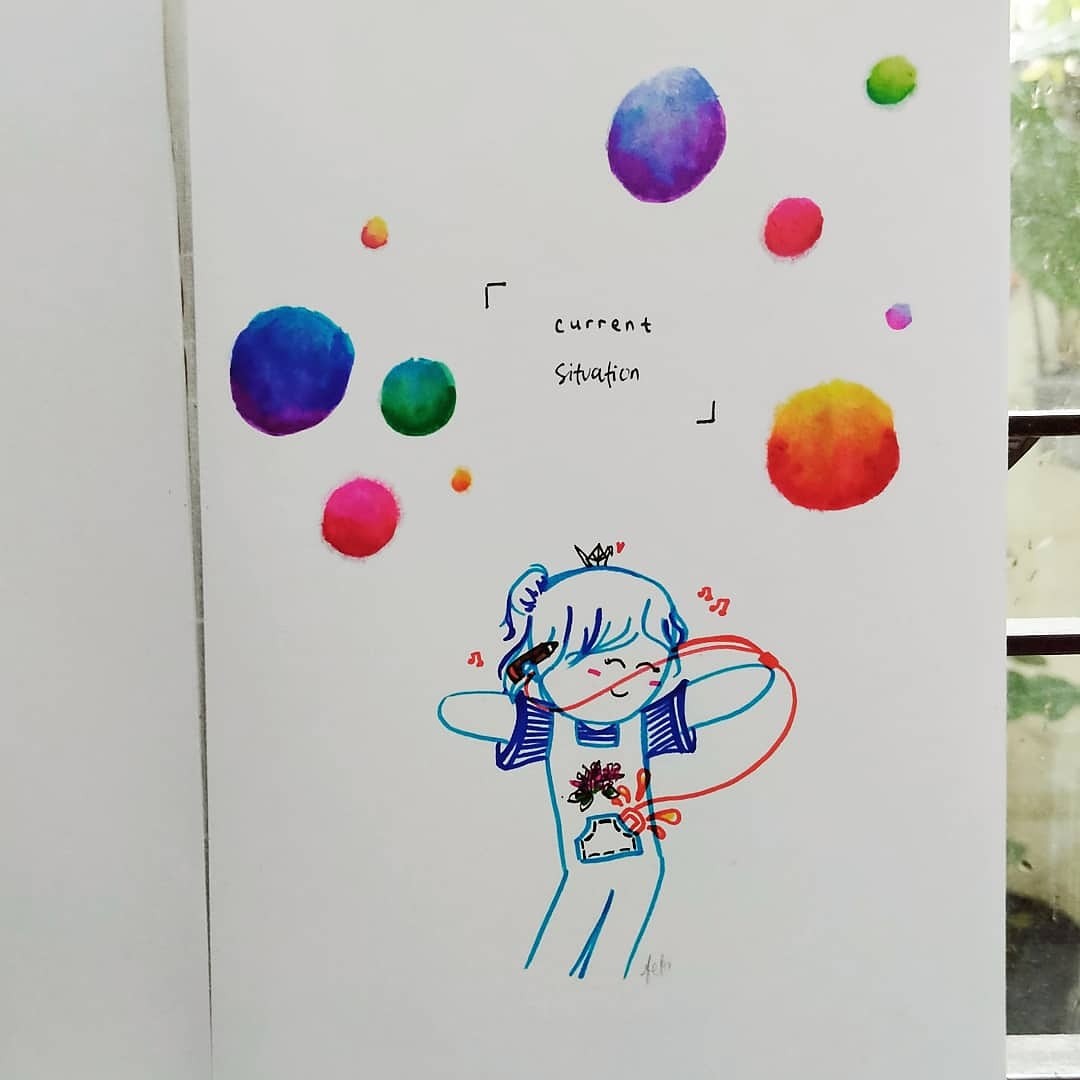 current
situation